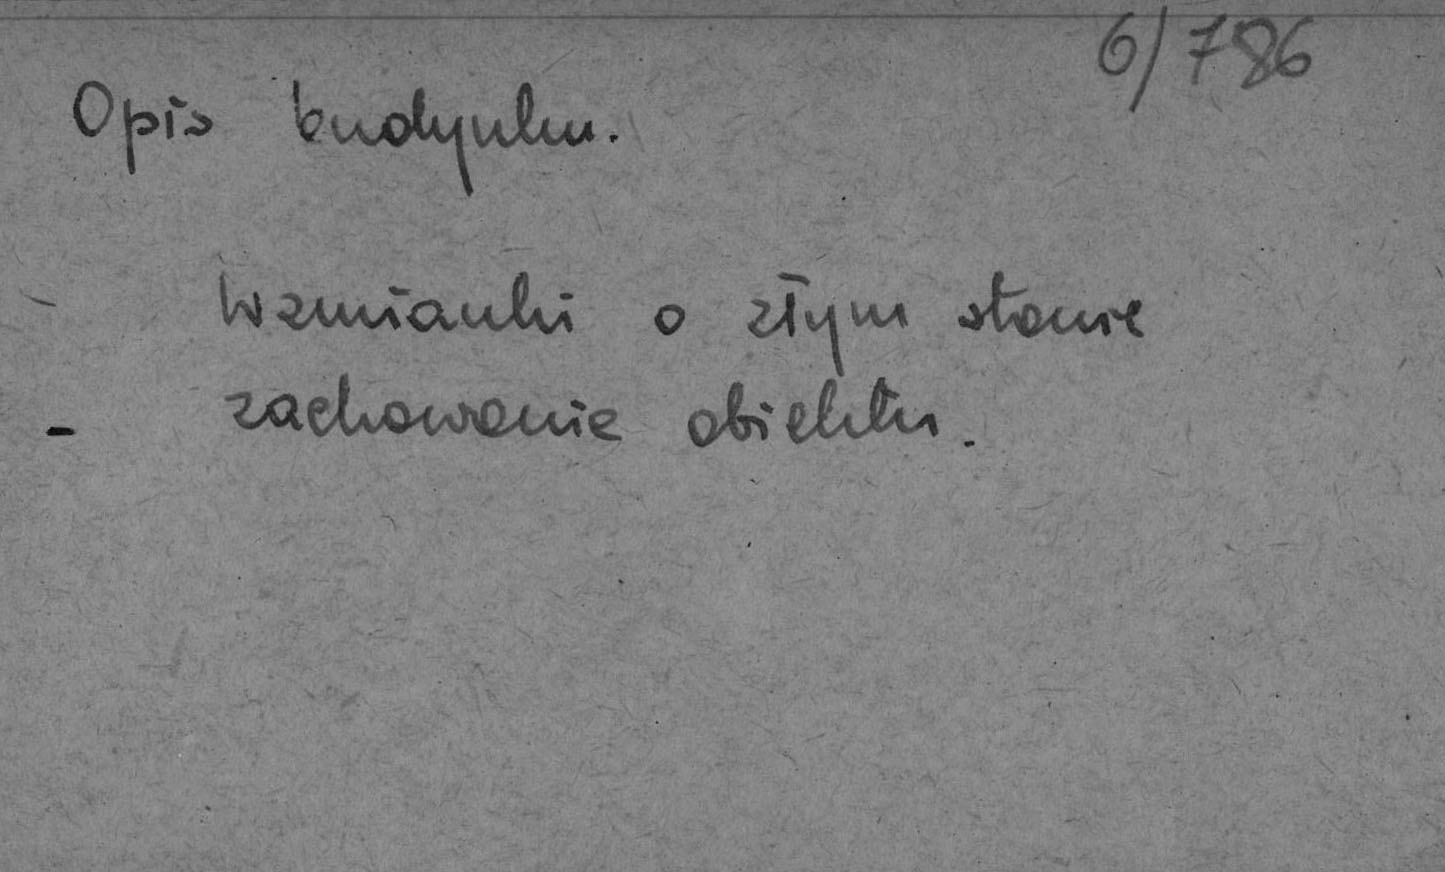 6/786
Opis budynku.
Wzmianki o złym stanie
zachowanie obiektu.